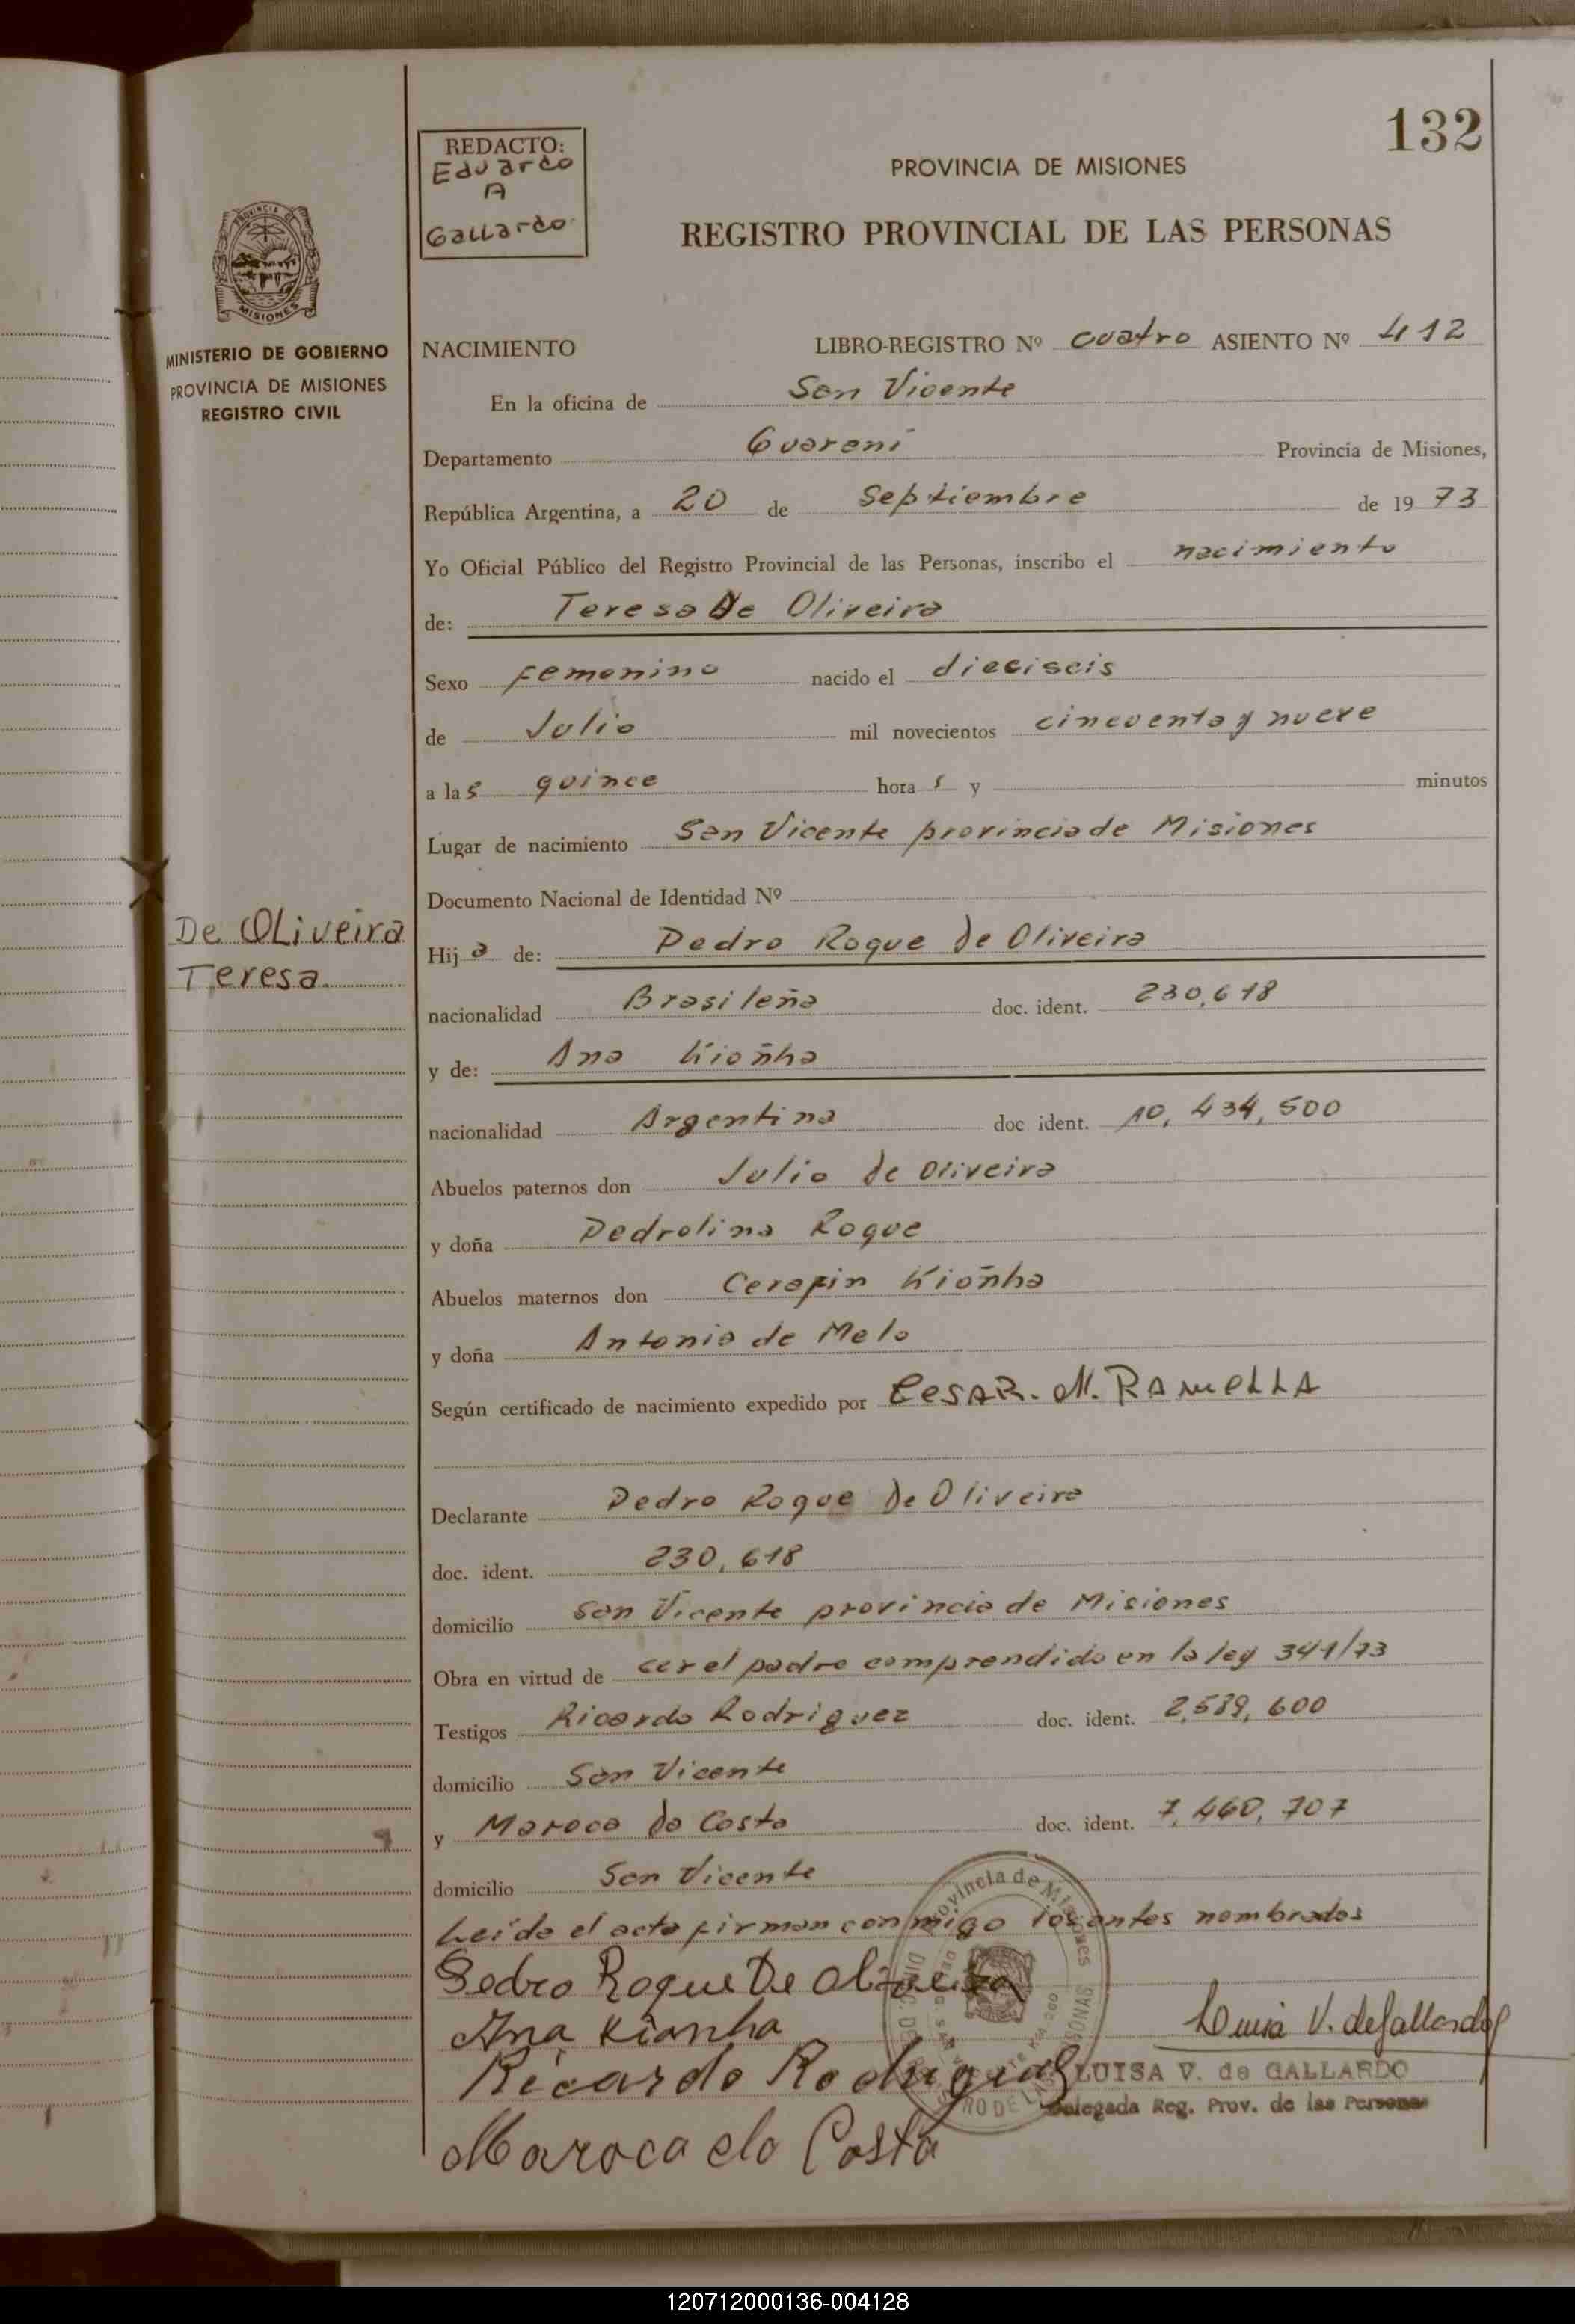 132
REDACTO:
Eduardo
A
Gallardo
PROVINCIA DE MISIONES
REGISTRO PROVINCIAL DE LAS PERSONAS
PROVINCIA DE
MISIONES
MINISTERIO DE GOBIERNO
PROVINCIA DE MISIONES
REGISTRO CIVIL
De Oliveira
Teresa
NACIMIENTO LIBRO-REGISTRO Nº cuatro ASIENTO Nº 412
En la oficina de San Vicente
Departamento Guarani Provincia de Misiones,
República Argentina, a 20 de Septiembre de 1973
Yo Oficial Público del Registro Provincial de las Personas, inscribo el nacimiento
de: Teresa De Oliveira
Sexo femenino nacido el dieciseis
de Julio mil novecientos cincuenta y nueve
a las quince horas y minutos
Lugar de nacimiento San Vicente provincia de Misiones
Documento Nacional de Identidad Nº
Hija de: Pedro Roque de Oliveira
nacionalidad Brasileña doc. ident. 230,618
y de: Ana Kioñha
nacionalidad Argentina doc ident. 10,434,500
Abuelos paternos don Julio de Oliveira
y doña Pedrolina Roque
Abuelos maternos don Cerafin Kioñha
y doña Antonia de Melo
Según certificado de nacimiento expedido por CesAR. M. RAmeLLA
Declarante Pedro Roque De Oliveira
doc. ident. 230,618
domicilio San Vicente provincia de Misiones
Obra en virtud de ser el padre comprendido en la ley 341/73
Testigos Ricardo Rodriguez doc. ident. 2,589,600
domicilio San Vicente
y Maroca da Costa doc. ident. 7,460,707
domicilio San Vicente
Leida el acta firman conmigo los antes nombrados
Pedro Roque De Oliveira
Ana Kianha
Ricardo Rodriguez
Maroca da Costa
Luisa V. de Gallardo
LUISA V. de GALLARDO
Delegada Reg. Prov. de las Personas
Provincia de Misiones
120712000136-004128